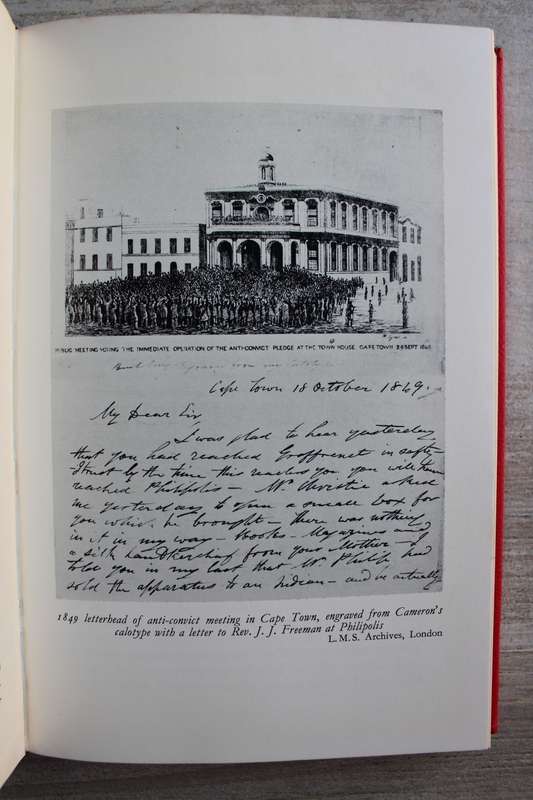 PUBLIC MEETING VOTING THE IMMEDIATE OPERATION OF THE ANTI-CONVICT PLEDGE AT THE TOWN HOUSE CAPETOWN
Cape Town 18 October 1849.
My Dear Sir,
I was glad to hear yesterday
that you had reached Graffreinet in safety
I trust by the time this reaches you you will have
reached Philipolis – Mr. Christie asked
me yesterday to open a small box for
you which he brought – there was nothing
in it in my way – Books – Magazines and
a silk handkerchief from your Mother – I
told you in my last that Mr. Philip had
sold the apparatus to an Indian – and is actually
1849 letterhead of anti-convict meeting in Cape Town, engraved from Cameron's
calotype with a letter to Rev. J. J. Freeman at Philipolis
L.M.S. Archives, London